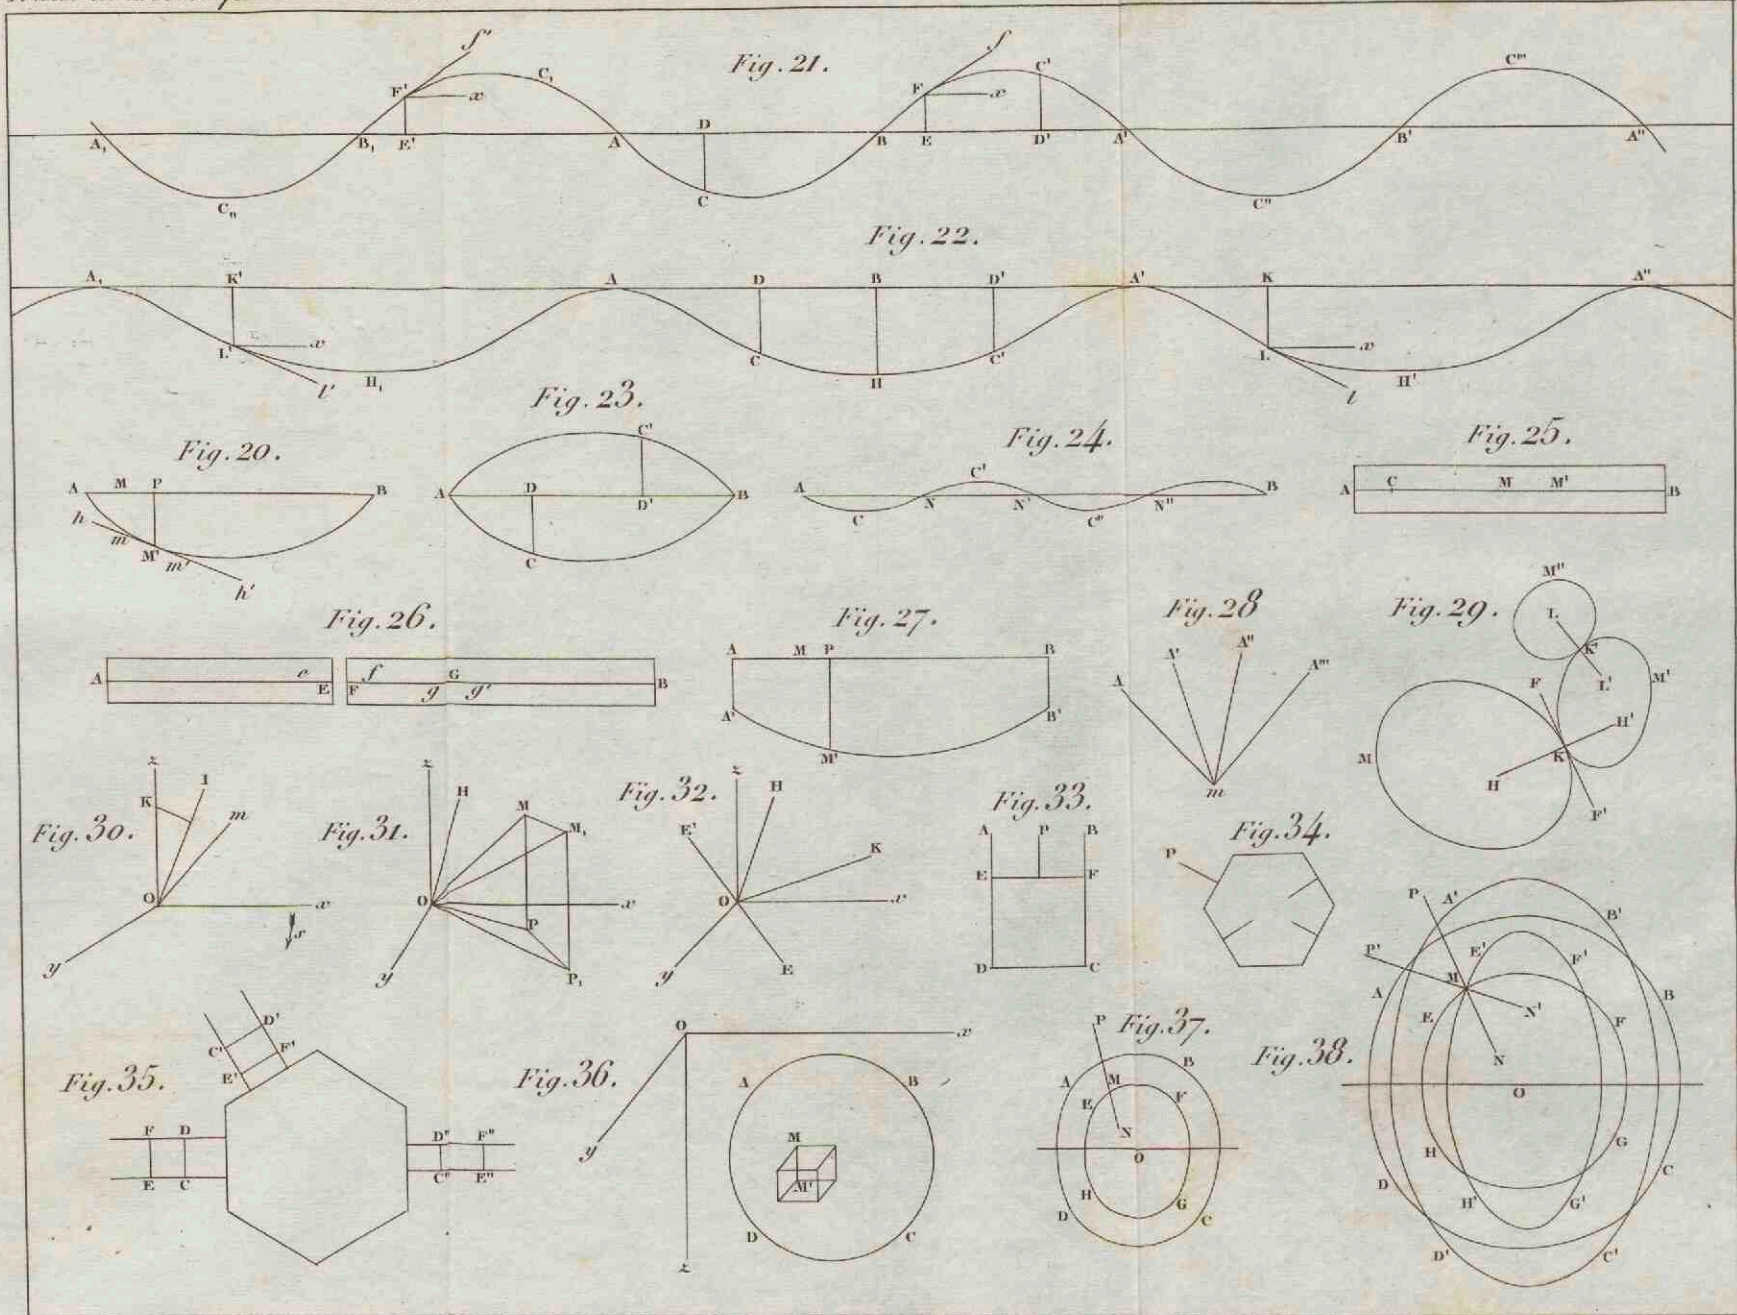 Fig. 21.
f' f
F' x C, F x C' C'''
A, B, E' A D B E D' A' B' A''
C,, C C''
Fig. 22.
A, K' A D B D' A' K A''
L' x C C' L x
H, l' H H' l
Fig. 20.
A M P B
h m M' m' h'
Fig. 23.
C'
A D D' B
C
Fig. 24.
A C' B
C N N' C'' N''
Fig. 25.
A C M M' B
Fig. 26.
A e E F f G g g' B
Fig. 27.
A M P B
A' B'
M'
Fig. 28
A A' A'' A'''
m
Fig. 29.
M''
L
K' L' M'
F H'
M K
H F'
Fig. 30.
z I
K m
O x
s
y
Fig. 31.
z H M M,
O x
P
y P,
Fig. 32.
z H
E' K
O x
y E
Fig. 33.
A P B
E F
D C
Fig. 34.
P
Fig. 35.
D'
C' F'
E'
F D D'' F''
E C C'' E''
Fig. 36.
O x
A B
y M
M'
D C
z
Fig. 37.
P
A M B
E F
N
O
H G
D C
Fig. 38.
P A' B'
P' E' F'
A M B
E N' F
N
O
H G
D C
H' G'
D' C'